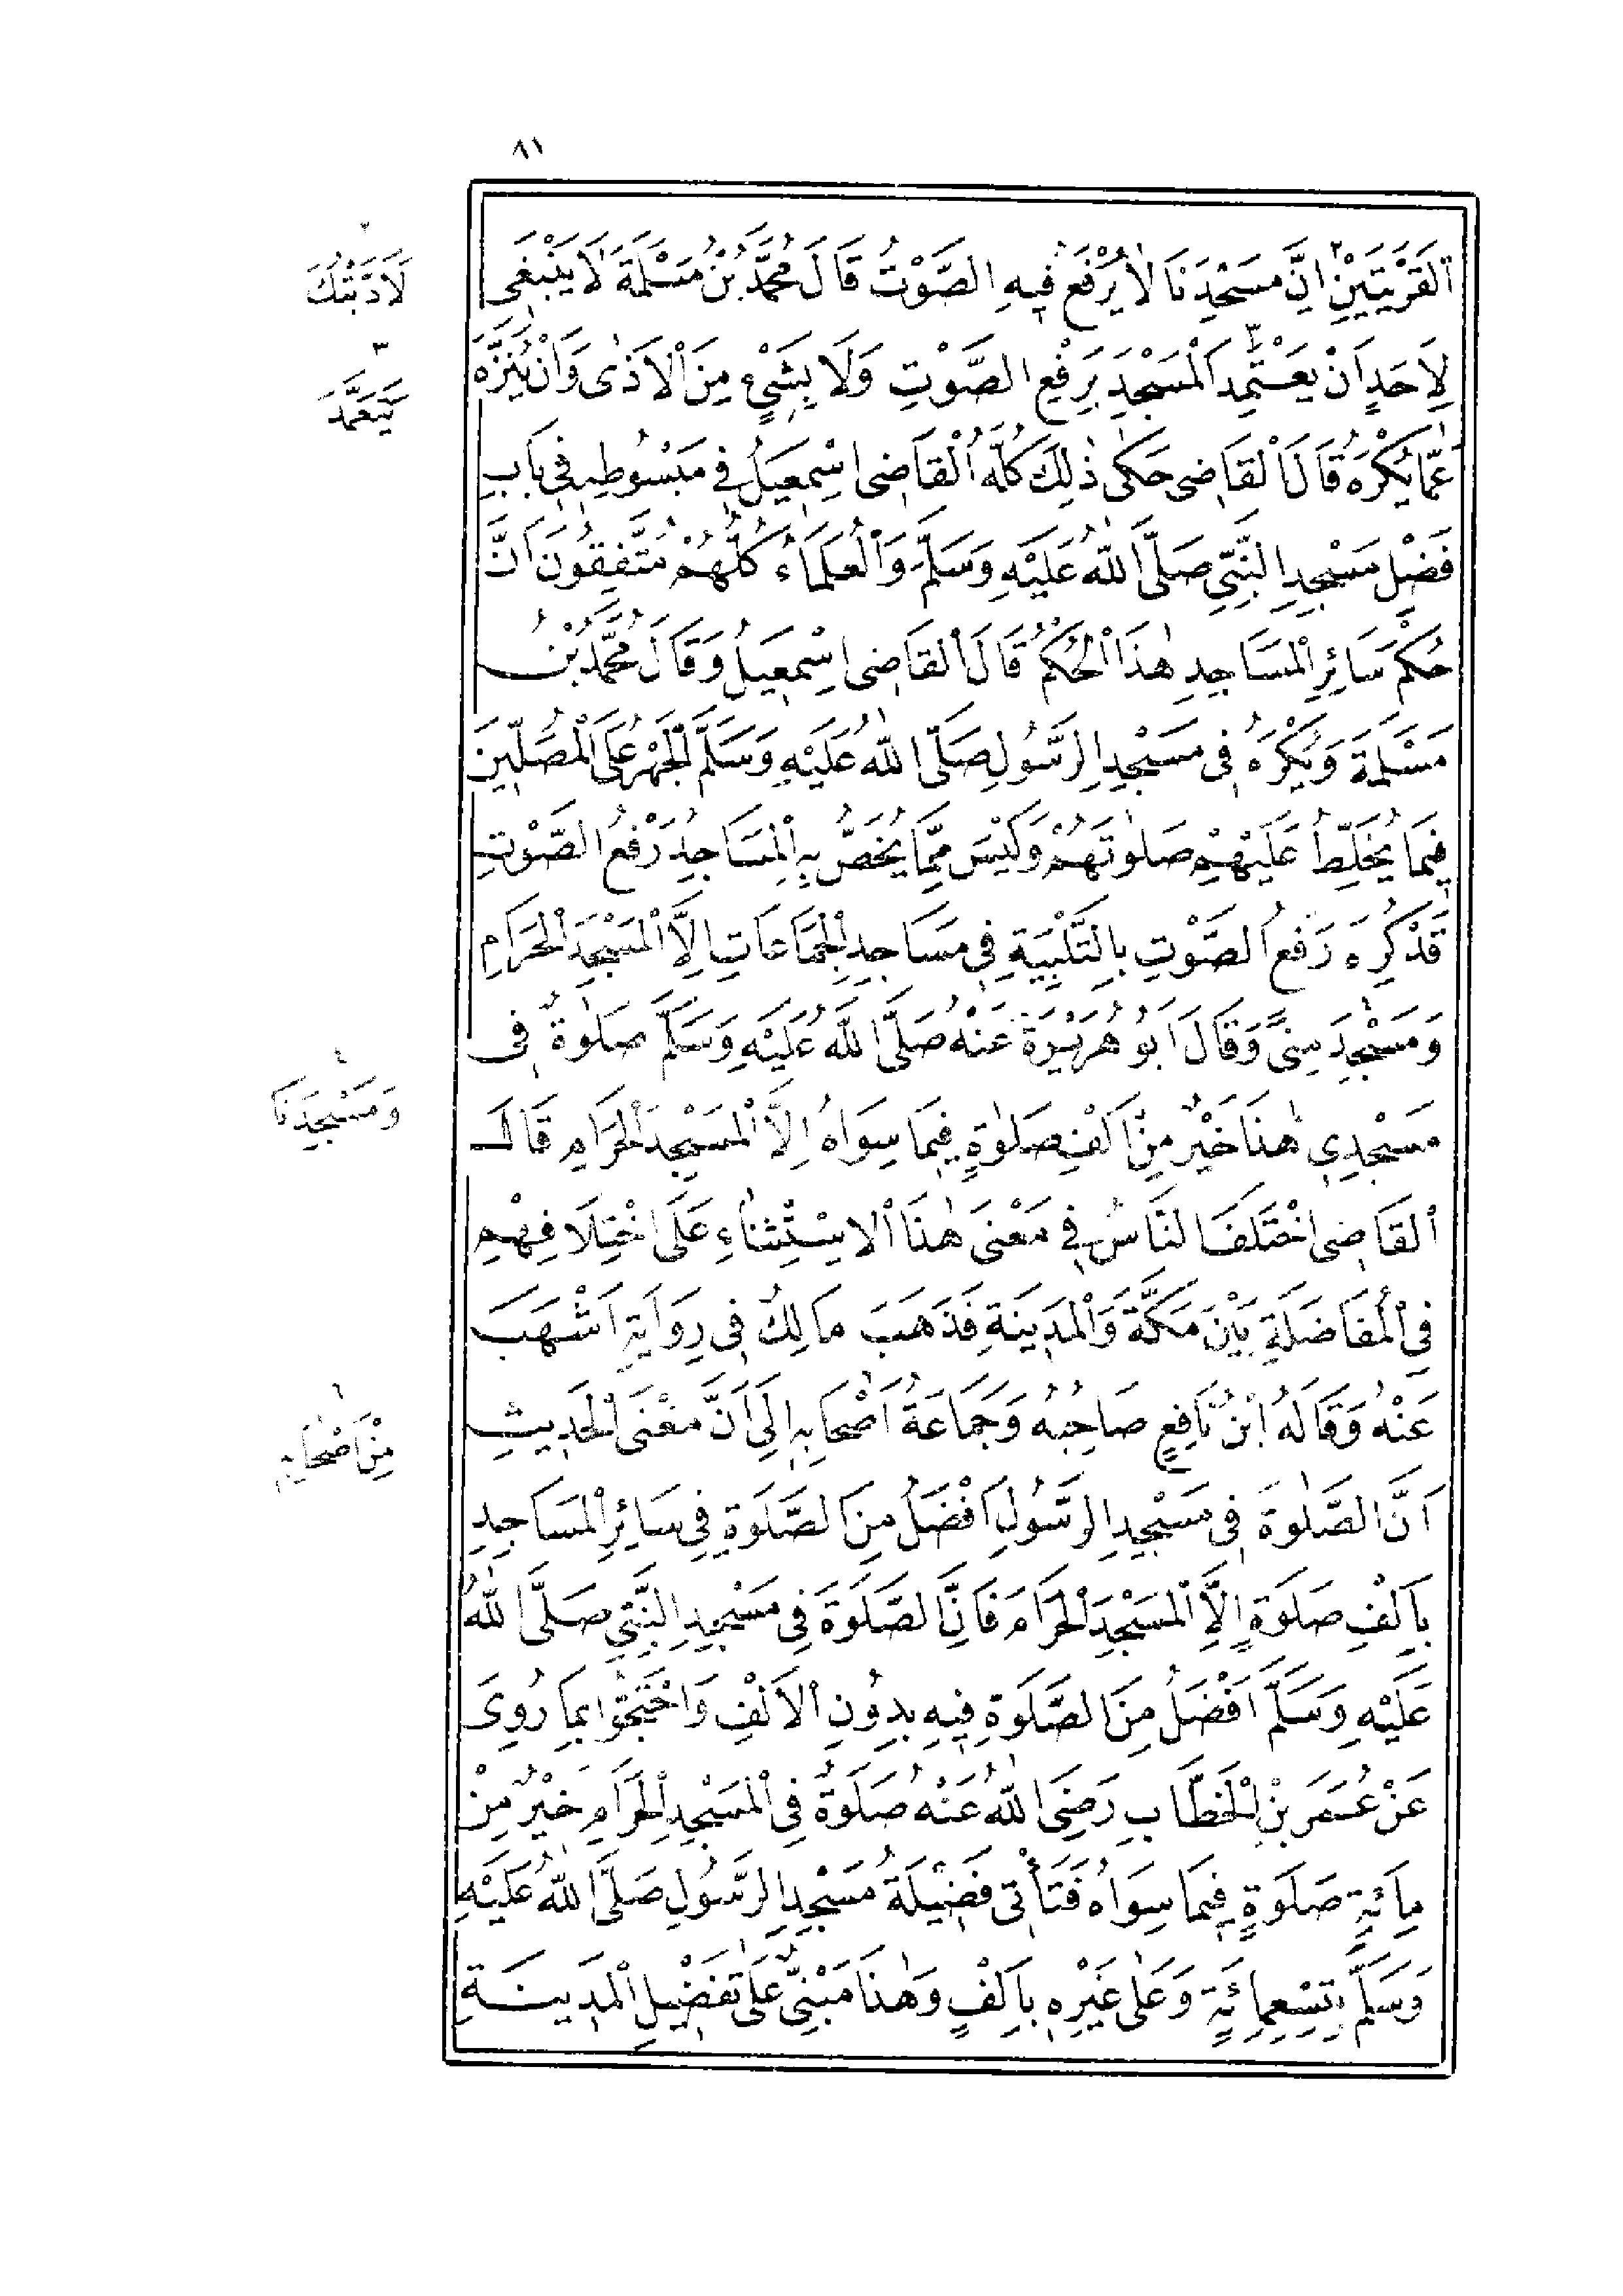 ٨١
اَلْقَرْيَتَيْنِ اِنَّ مَسْجِدَنَا لَا يُرْفَعُ فِيهِ الصَّوْتُ قَالَ مُحَمَّدُ بْنُ مَسْلَمَةَ لَا يَنْبَغِى
لِاَحَدٍ اَنْ يَعْتَمِدَ الْمَسْجِدَ بِرَفْعِ الصَّوْتِ وَلَا بِشَىْءٍ مِنَ الْاَذٰى وَاَنْ يُنَزَّهَ
عَمَّا يُكْرَهُ قَالَ الْقَاضِى حَكٰى ذٰلِكَ كُلَّهُ الْقَاضِى اِسْمٰعِيلُ فِى مَبْسُوطِهِ فِى بَابِ
فَضْلِ مَسْجِدِ النَّبِىِّ صَلَّى اللهُ عَلَيْهِ وَسَلَّمَ وَالْعُلَمَاءُ كُلُّهُمْ مُتَّفِقُونَ اَنَّ
حُكْمَ سَائِرِ الْمَسَاجِدِ هٰذَا الْحُكْمُ قَالَ الْقَاضِى اِسْمٰعِيلُ وَقَالَ مُحَمَّدُ بْنُ
مَسْلَمَةَ وَيُكْرَهُ فِى مَسْجِدِ الرَّسُولِ صَلَّى اللهُ عَلَيْهِ وَسَلَّمَ الْجَهْرُ عَلَى الْمُصَلِّينَ
فِيمَا يُخَلِّطُ عَلَيْهِمْ صَلٰوتَهُمْ وَلَيْسَ مِمَّا يُخَصُّ بِهِ الْمَسَاجِدُ رَفْعُ الصَّوْتِ
قَدْ كُرِهَ رَفْعُ الصَّوْتِ بِالتَّلْبِيَةِ فِى مَسَاجِدِ الْجَمَاعَاتِ اِلَّا الْمَسْجِدَ الْحَرَامِ
وَمَسْجِدَ مِنًى وَقَالَ اَبُو هُرَيْرَةَ عَنْهُ صَلَّى اللهُ عَلَيْهِ وَسَلَّمَ صَلٰوةٌ فِى
مَسْجِدِى هٰذَا خَيْرٌ مِنْ اَلْفِ صَلٰوةٍ فِيمَا سِوَاهُ اِلَّا الْمَسْجِدَ الْحَرَامِ قَالَ
اَلْقَاضِى اخْتَلَفَ النَّاسُ فِى مَعْنَى هٰذَا الْاِسْتِثْنَاءِ عَلَى اخْتِلَافِهِمْ
فِى الْمُفَاضَلَةِ بَيْنَ مَكَّةَ وَالْمَدِينَةِ فَذَهَبَ مَالِكٌ فِى رِوَايَةِ اَشْهَبَ
عَنْهُ وَقَالَهُ ابْنُ نَافِعٍ صَاحِبُهُ وَجَمَاعَةُ اَصْحَابِهِ اِلَى اَنَّ مَعْنَى الْحَدِيثِ
اَنَّ الصَّلٰوةَ فِى مَسْجِدِ الرَّسُولِ اَفْضَلُ مِنَ الصَّلَوةِ فِى سَائِرِ الْمَسَاجِدِ
بِاَلْفِ صَلَوةٍ اِلَّا الْمَسْجِدَ الْحَرَامَ فَاِنَّ الصَّلَوةَ فِى مَسْجِدِ النَّبِىِّ صَلَّى اللهُ
عَلَيْهِ وَسَلَّمَ اَفْضَلُ مِنَ الصَّلَوةِ فِيهِ بِدُونِ الْاَلْفِ وَاحْتَجُّوا بِمَا رُوِىَ
عَنْ عُمَرَ بْنِ الْخَطَّابِ رَضِىَ اللهُ عَنْهُ صَلَوةٌ فِى الْمَسْجِدِ الْحَرَامِ خَيْرٌ مِنْ
مِائَةِ صَلَوةٍ فِيمَا سِوَاهُ فَتَأْتِى فَضِيلَةُ مَسْجِدِ الرَّسُولِ صَلَّى اللهُ عَلَيْهِ
وَسَلَّمَ بِتِسْعِمِائَةٍ وَعَلٰى غَيْرِهِ بِاَلْفٍ وَهٰذَا مَبْنِىٌّ عَلٰى تَفْضِيلِ الْمَدِينَةِ
٢
لَاَدَّبْتُكَ
٣
يَتَعَمَّدَ
٤
وَمَسْجِدَنَا
٦
مِنْ اَصْحَابِهِ